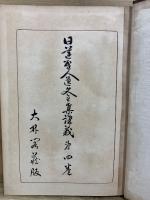 日蓮聖人遺文全集講義 第四巻
大林閣蔵版